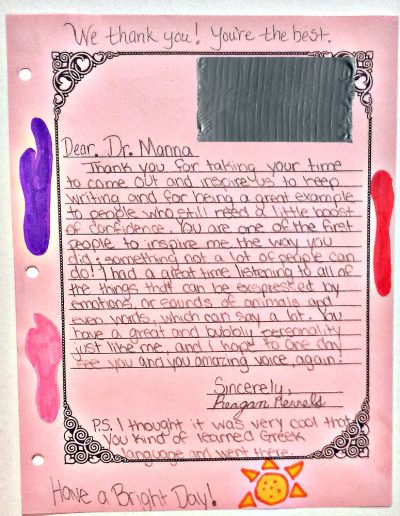 We thank you! You're the best.
Dear. Dr. Manna
Thank you for taking your time
to come out and inspire us to keep
writing and for being a great example
to people who still need a little boost
of confidence. You are one of the first
people to inspire me the way you
did; something not a lot of people can
do! I had a great time listening to all of
the things that can be expressed by
emotions or sounds of animals and
even words, which can say a lot. You
have a great and bubbly personality
just like me, and I hope to one day
see you and you amazing voice, again!
Sincerely,
Reagan
P.S. I thought it was very cool that
you kind of learned Greek
language and went there.
Have a Bright Day!